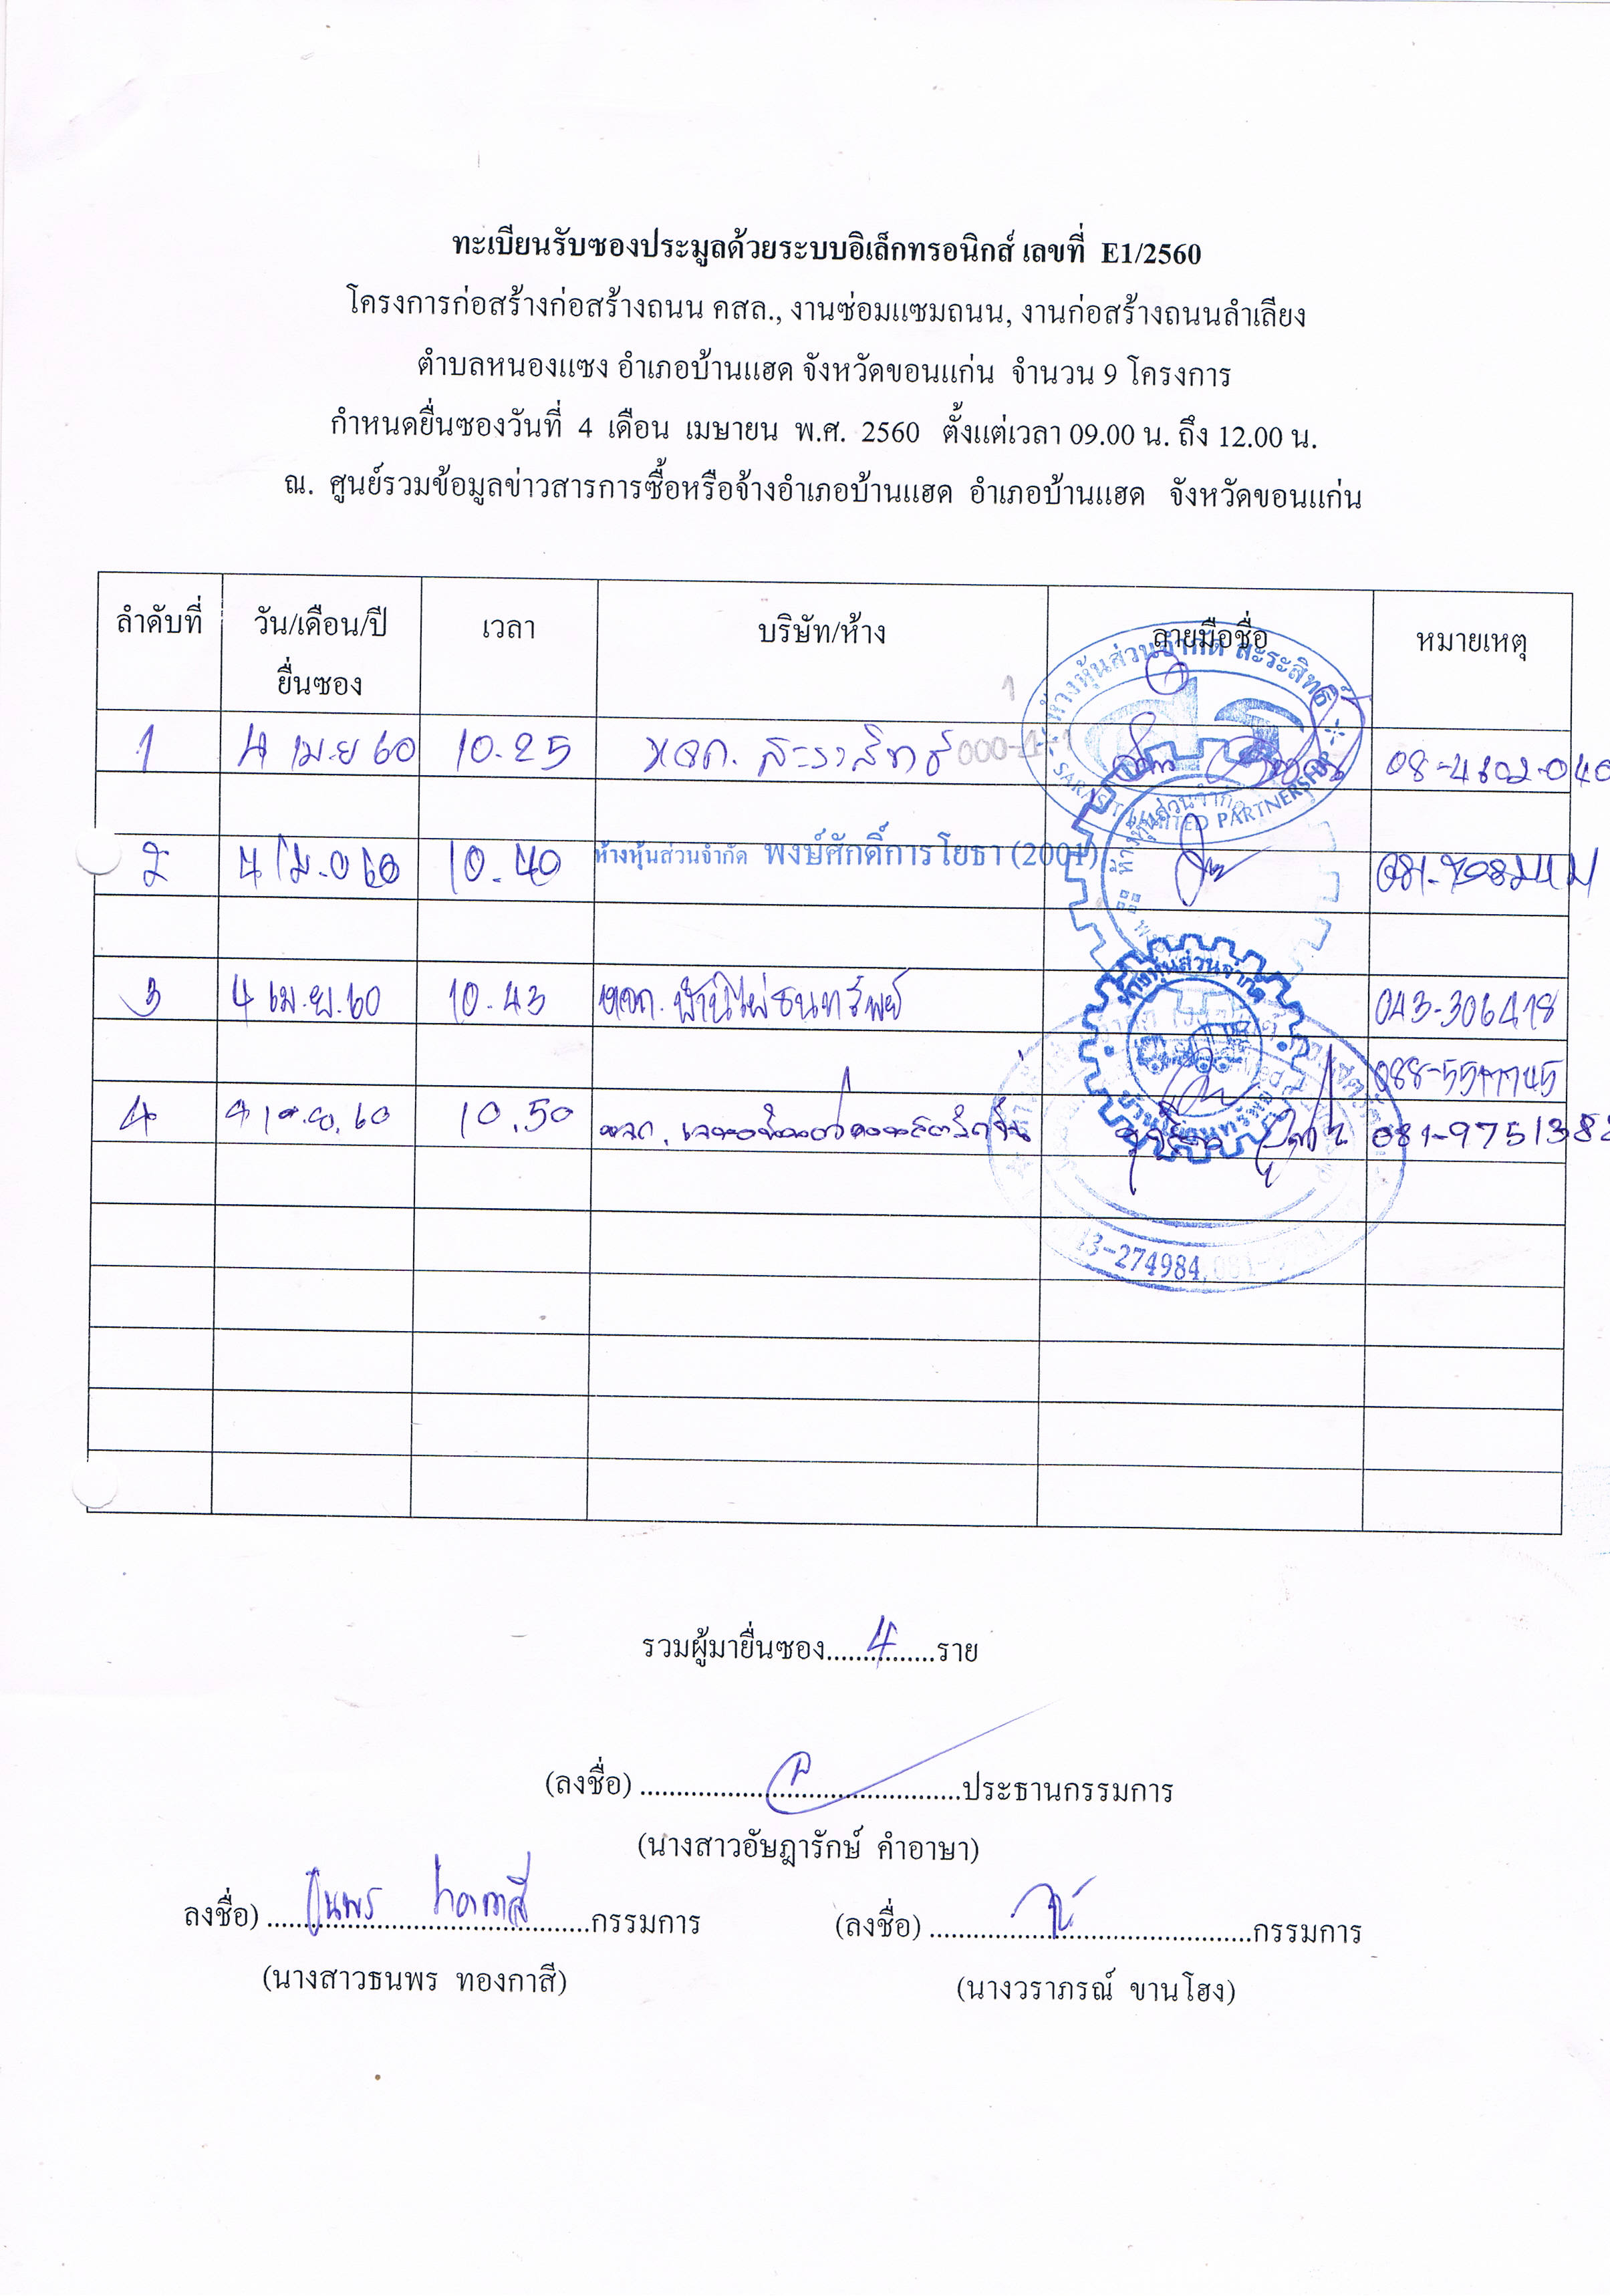 ทะเบียนรับซองประมูลด้วยระบบอิเล็กทรอนิกส์ เลขที่ E1/2560
โครงการก่อสร้างก่อสร้างถนน คสล., งานซ่อมแซมถนน, งานก่อสร้างถนนลำเลียง
ตำบลหนองแซง อำเภอบ้านแฮด จังหวัดขอนแก่น จำนวน 9 โครงการ
กำหนดยื่นซองวันที่ 4 เดือน เมษายน พ.ศ. 2560 ตั้งแต่เวลา 09.00 น. ถึง 12.00 น.
ณ. ศูนย์รวมข้อมูลข่าวสารการซื้อหรือจ้างอำเภอบ้านแฮด อำเภอบ้านแฮด จังหวัดขอนแก่น
ลำดับที่ วัน/เดือน/ปี เวลา บริษัท/ห้าง ลายมือชื่อ หมายเหตุ
ยื่นซอง
ห้างหุ้นส่วนจำกัด สะระสิทธิ์
1 4 เม.ย 60 10.25 หจก. สะระสิทธิ์
SARASIT LIMITED PARTNERSHIP
2 4 เม.ย 60 10.40 ห้างหุ้นส่วนจำกัด พงษ์ศักดิ์การโยธา (2001)
ห้างหุ้นส่วนจำกัด
3 4 เม.ย. 60 10.43 หจก. บ้านไผ่ธนทรัพย์ 043-306418
4 4 เม.ย. 60 10.50 หจก. 081-9751382
13-274984,
รวมผู้มายื่นซอง.....4.....ราย
(ลงชื่อ) ..........ประธานกรรมการ
(นางสาวอัษฎารักษ์ คำอาษา)
ลงชื่อ) ธนพร ทองกาสี กรรมการ (ลงชื่อ) ..........กรรมการ
(นางสาวธนพร ทองกาสี) (นางวราภรณ์ ขานโฮง)